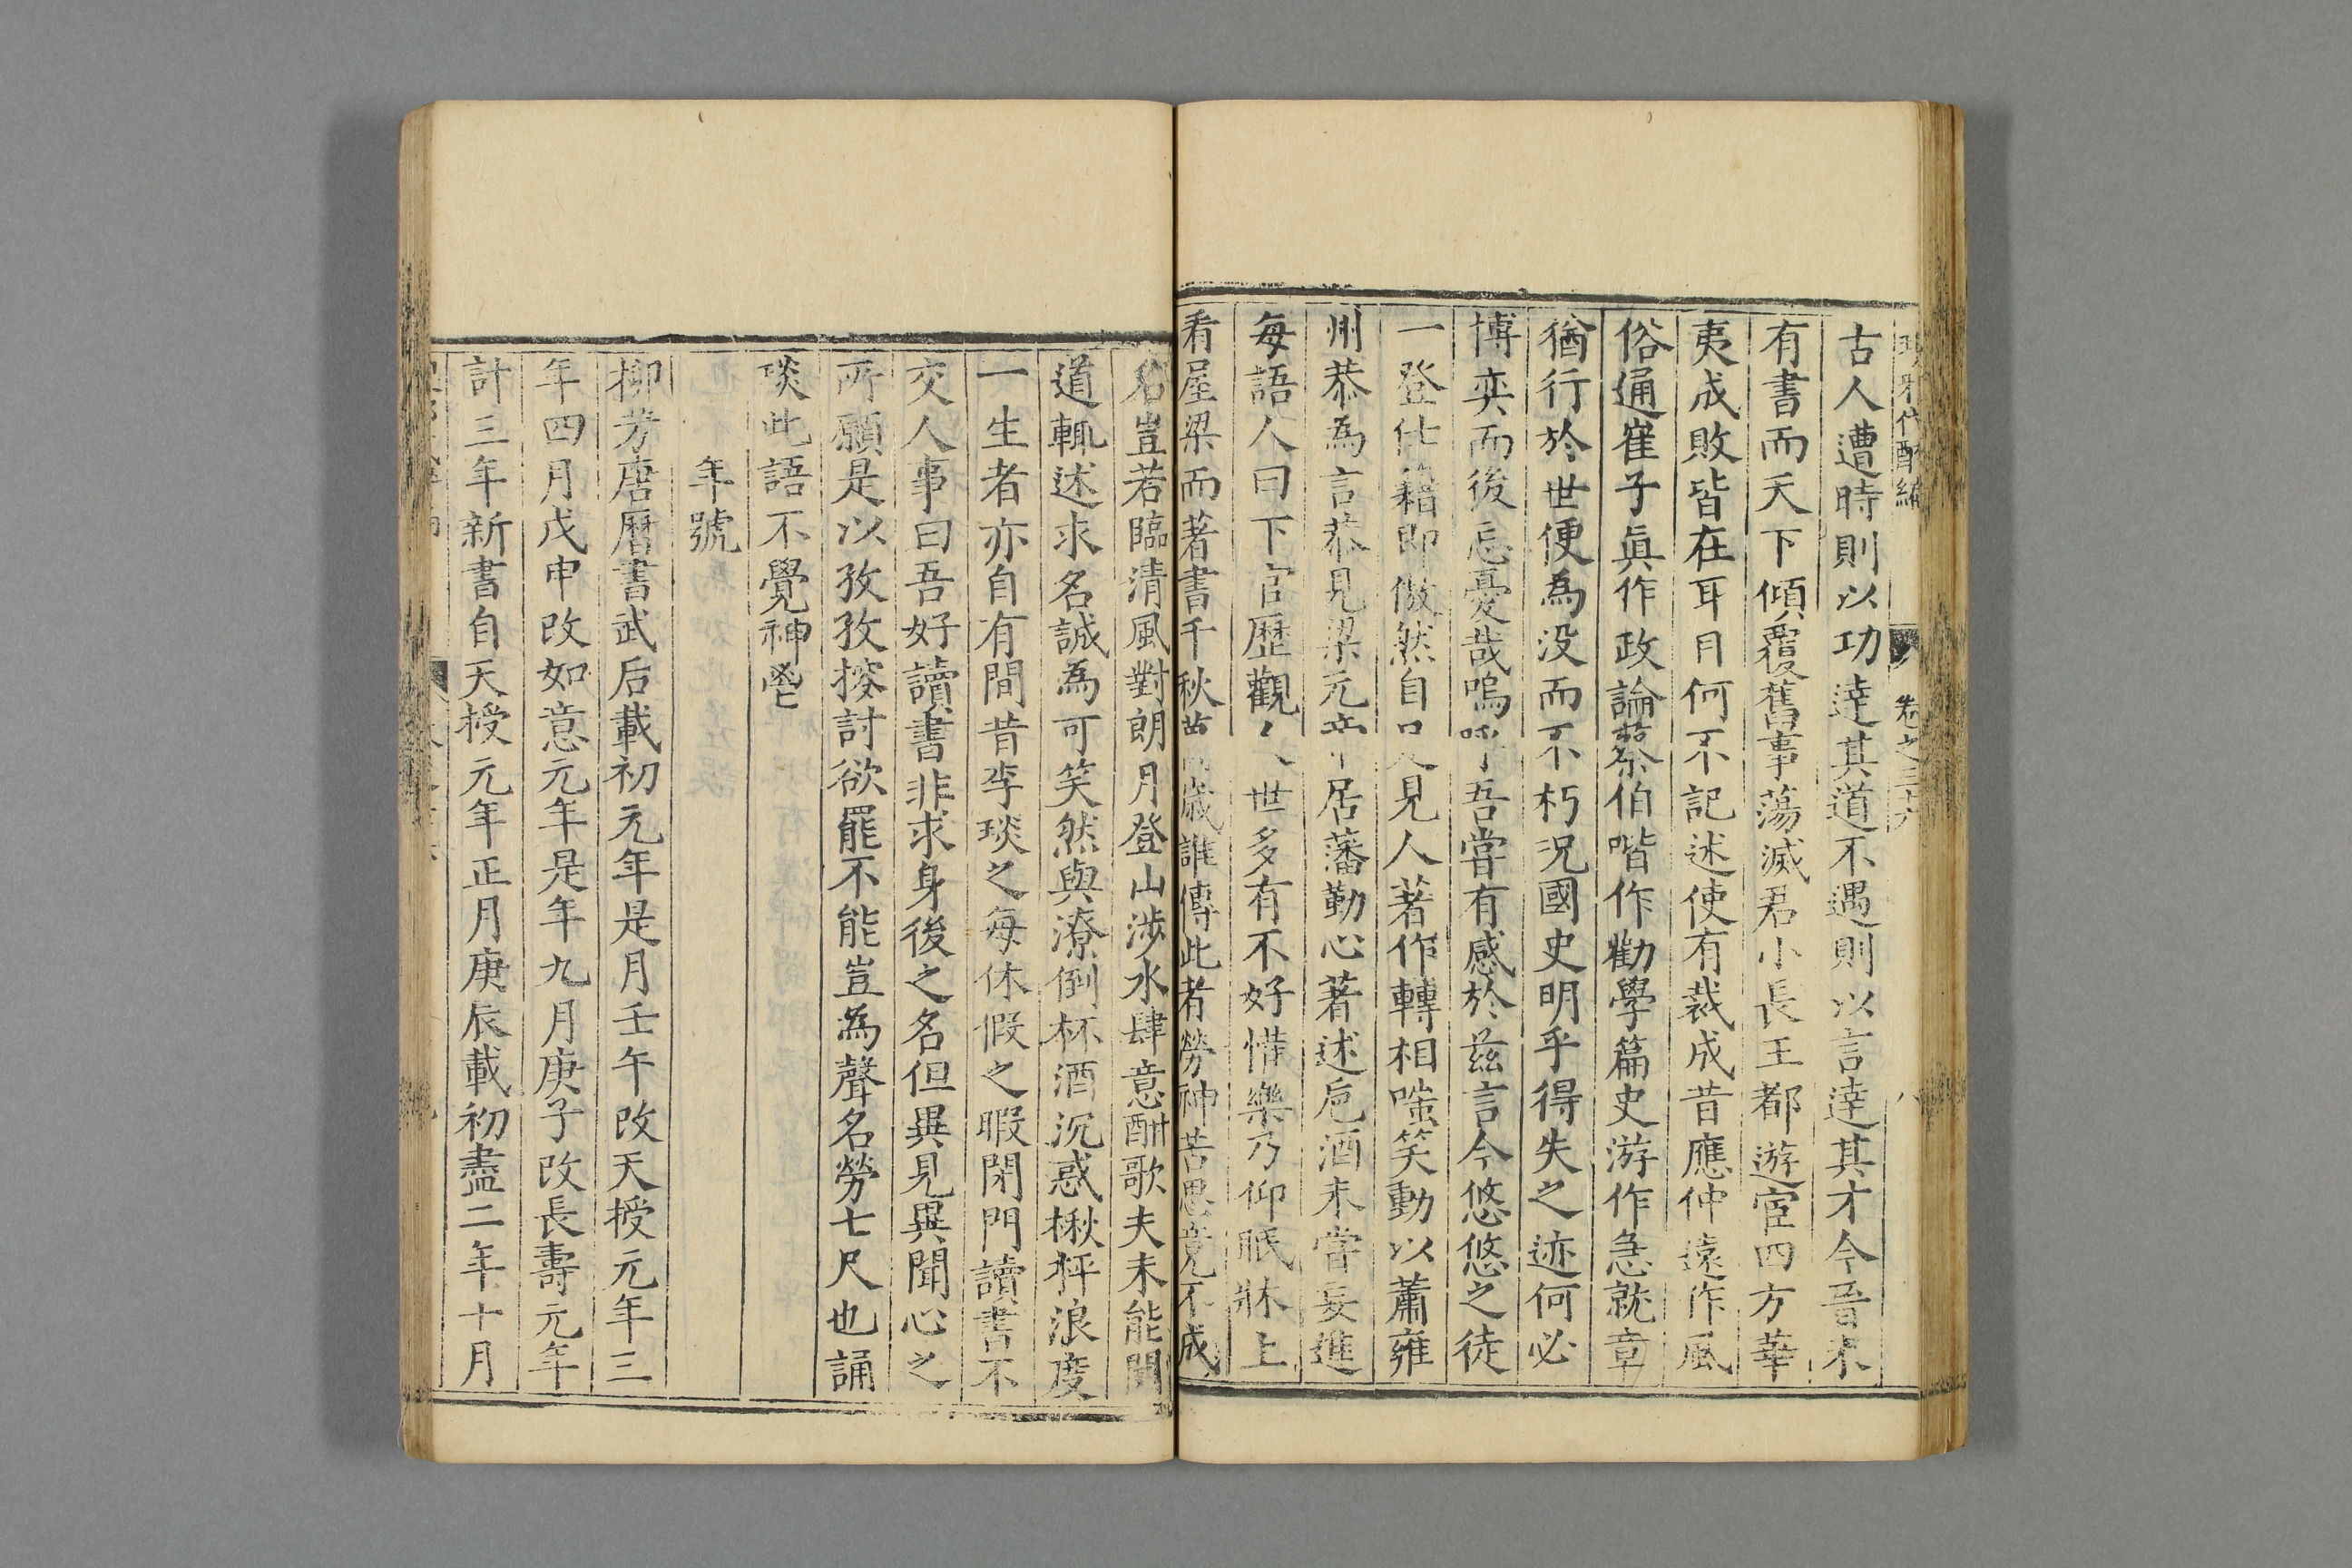 琅邪代醉編 卷之三十六 八
古人遭時則以功達其道不遇則以言達其才今晉未
有書而天下傾覆舊事蕩滅君小長王都遊宦四方華
夷成敗皆在耳目何不記述使有裁成昔應仲遠作風
俗通崔子眞作政論蔡伯喈作勸學篇史游作急就章
猶行於世便為没而不朽況國史明乎得失之迹何必
博奕而後忘憂哉嗚呼吾嘗有感於兹言今悠悠之徒
一登仕籍即傲然自 見人著作轉相嗤笑動以蕭雍
州恭為言恭見梁元帝 居藩勤心著述卮酒未嘗妄進
每語人曰下官歷觀 世多有不好懽樂乃仰眠牀上
看屋梁而著書千秋萬歲誰傳此者勞神苦思竟不成
名豈若臨清風對朗月登山涉水肆意酣歌夫未能聞
道輒述求名誠為可笑然與潦倒杯酒沉惑楸枰浪度
一生者亦自有間昔李琰之每休假之暇閉門讀書不
交人事曰吾好讀書非求身後之名但異見異聞心之
所願是以孜孜搜討欲罷不能豈為聲名勞七尺也誦
琰此語不覺神
年號
柳芳唐曆書武后載初元年是月壬午改天授元年三
年四月戊申改如意元年是年九月庚子改長壽元年
計三年新書自天授元年正月庚辰載初盡二年十月